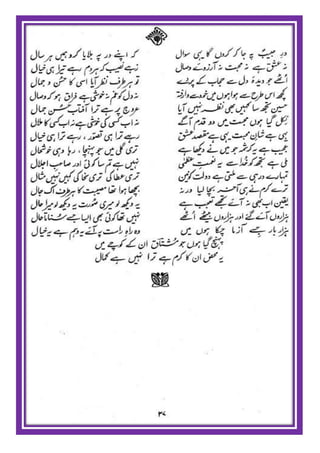 درِ حبیبؐ پہ جا کر کروں گا یہی سوال کہ اپنے در پہ بلایا کرو ہمیں ہر سال
نہ عشق ہے نہ محبت نہ آرزوئے وصال زہے نصیب کہ ہر دم رہے ترا ہی خیال
اُٹھے جو دیدۂ دل سے حجاب کے پردے تو ہر طرف نظر آیا اُسی کا حسن و جمال
کچھ اِس طرح سے ہوا ہوں میں خود سے وارفتہ نہ دل کو غم نہ خوشی ہے فراق ہو کہ وصال
حسین تجھ سا کہیں بھی نظر نہیں آیا عروج پر ہے ترا آفتابِ حُسن جمال
نکل گیا ہوں محبت میں دو قدم آگے نہ اب کسی کی خوشی ہے نہ اب کسی کا ملال
یہی ہے شانِ محبت یہی ہے مقصدِ عشق رہے ترا ہی تصور، رہے ترا ہی خیال
عجیب ہے یہ کرشمہ جو میں نے دیکھا ہے تری گلی میں جو پہنچا، رہا وہی خوشحال
ملی ہے تجھ کو خُدا سے یہ نعمتِ عظمیٰ نہیں ہے تم سا کوئی اور صاحبِ اجلال
تمہارے در ہی سے ملتی ہے دولتِ کونین تری عطا کی تری سخا کی نہیں کہیں مثال
ترے کرم نے ہی آخر بچا لیا ورنہ بچھا ہوا تھا مصیبت کا ہر طرف اک جال
یقین اب بھی نہ آئے تجھے تعجب ہے یہ دیکھ لو میری صورت یہ دیکھ لو میرا حال
ہزاروں آئے گئے اور ہزاروں بیٹھے اُٹھے نہیں تھا کوئی بھی ایسا جسے سُناتا حال
ہزار بار جسے آزما چکا ہوں میں وہ راہِ راست پہ آئے یہ وہم ہے یہ خیال
پہنچ گیا ہوں جو مشتاقؔ ان کے کوچے میں
یہ محض ان کا کرم ہے ترا نہیں ہے کمال
۳۷